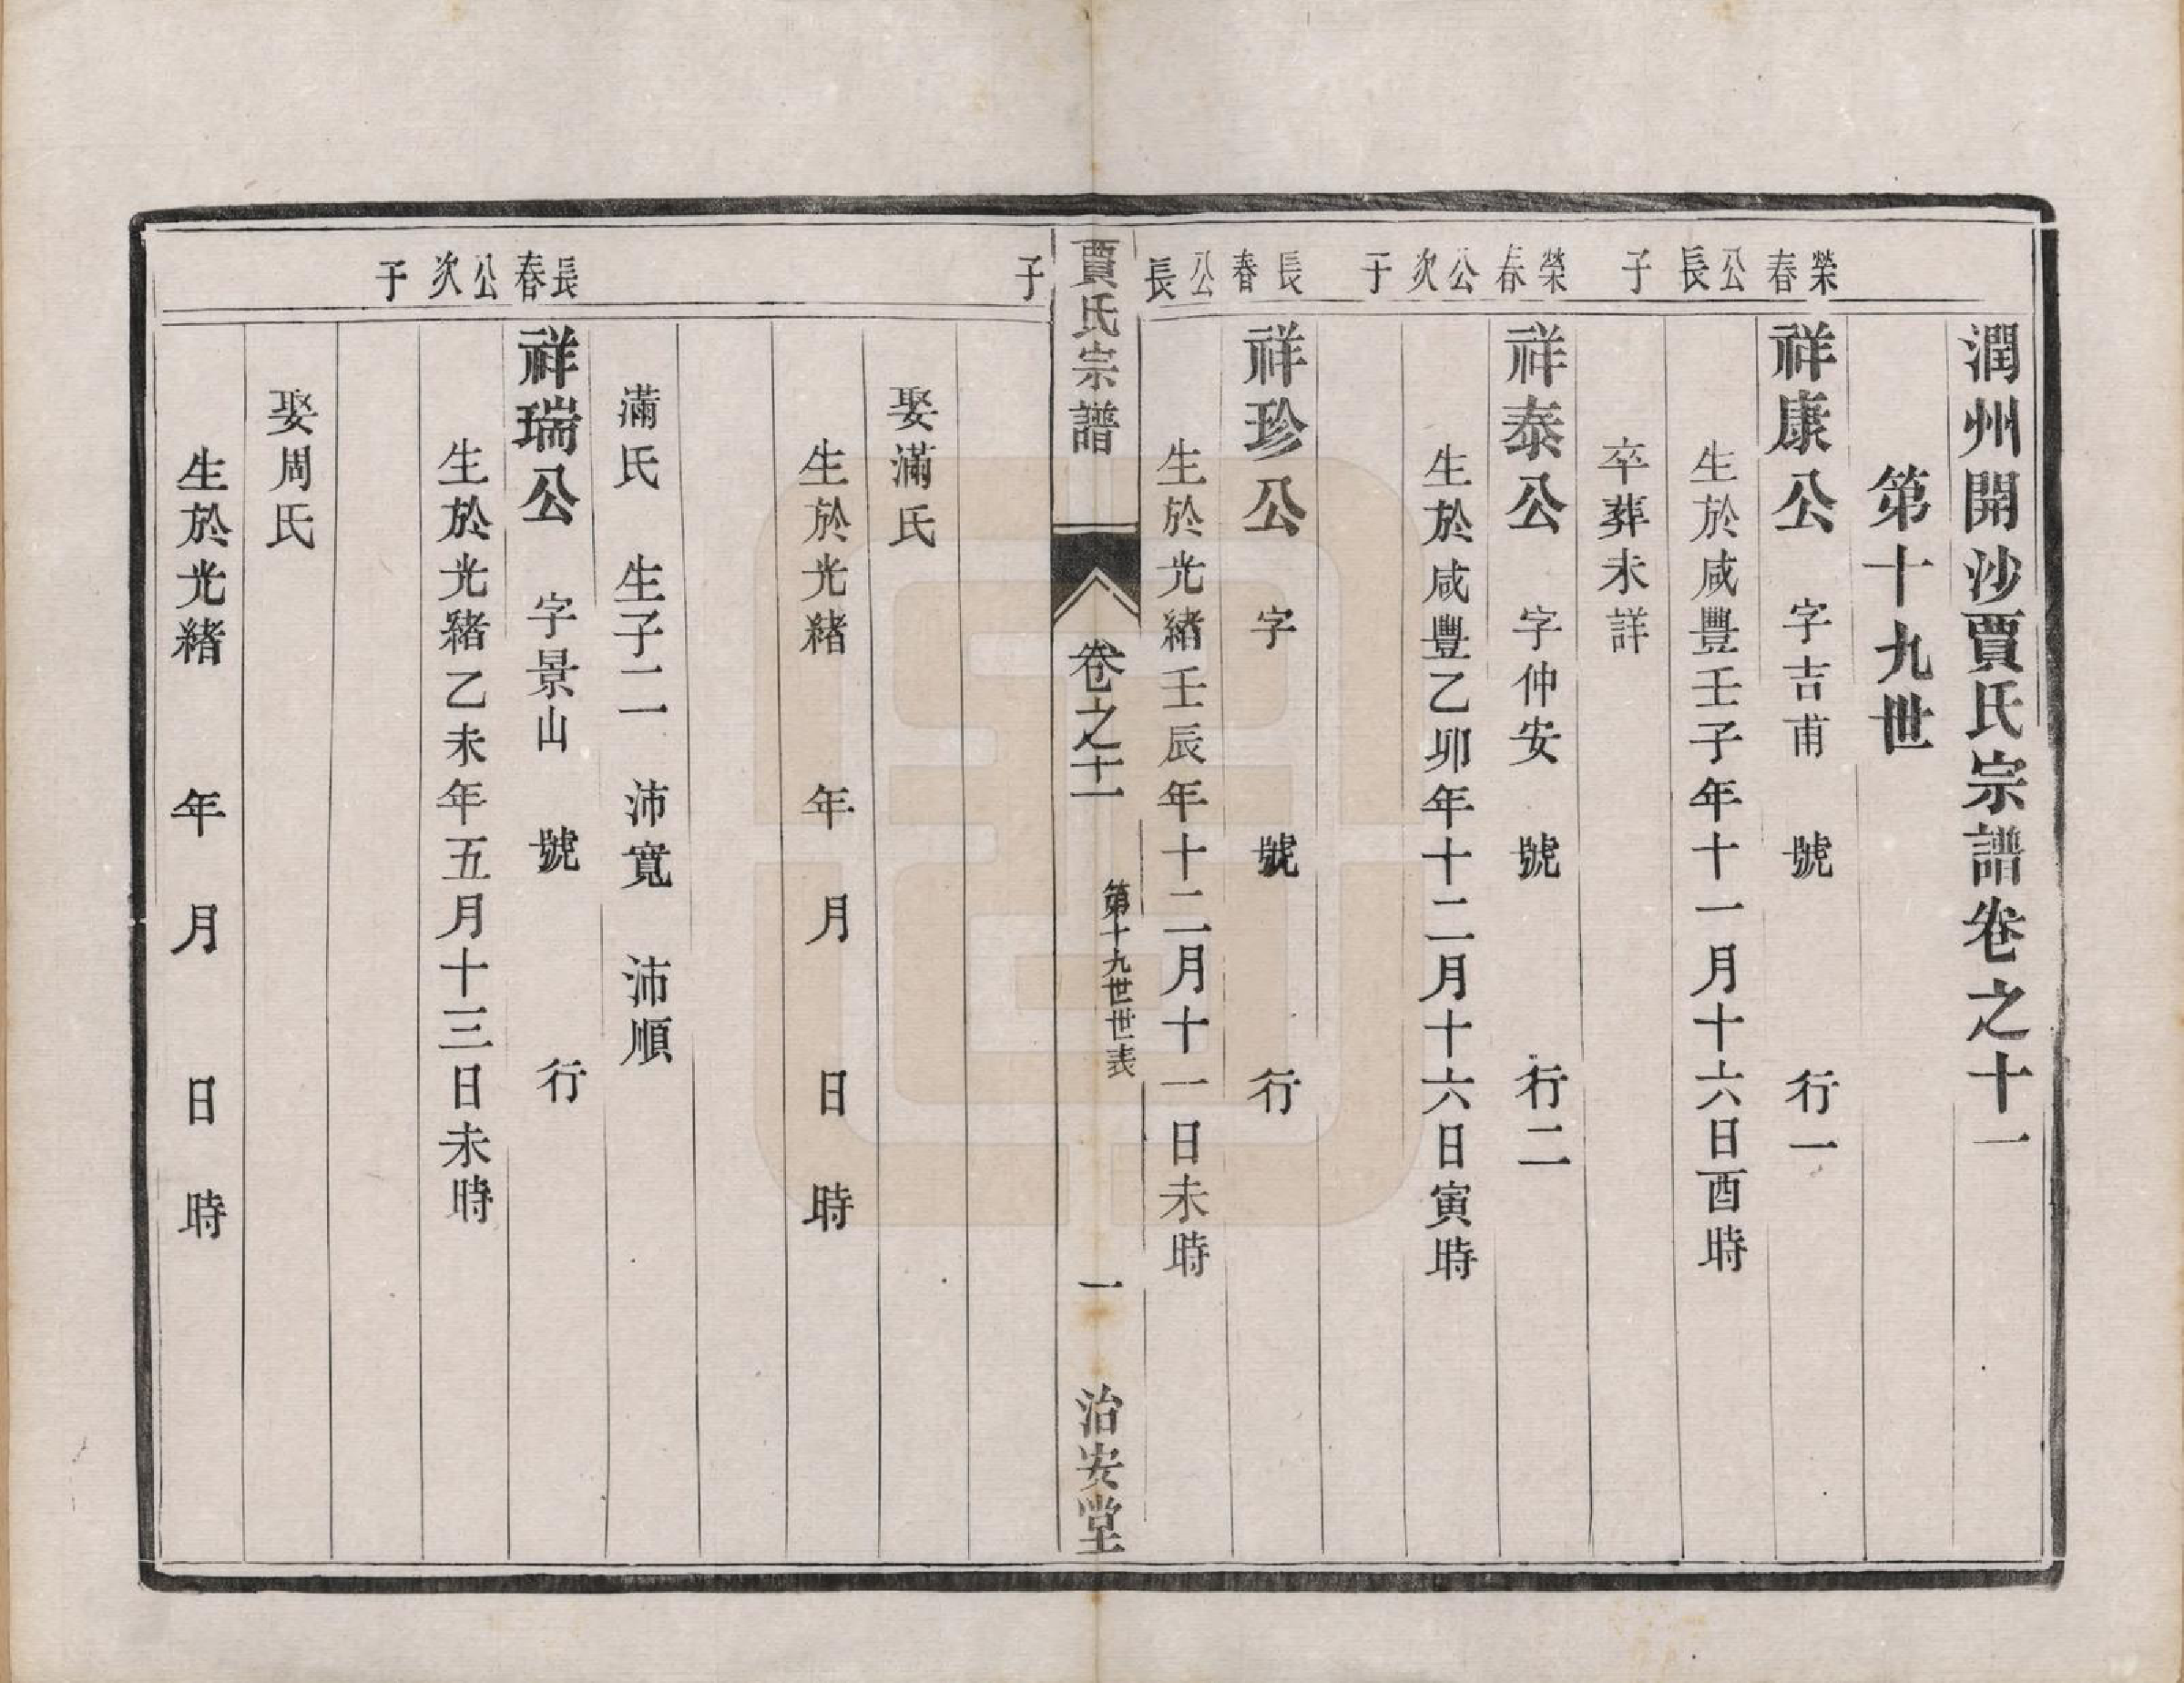 潤州開沙賈氏宗譜卷之十一
第十九世
榮春公長子
祥康公 字吉甫 號 行一
生於咸豐壬子年十一月十六日酉時
卒葬未詳
榮春公次子
祥泰公 字仲安 號 行二
生於咸豐乙卯年十二月十六日寅時
長春公長子
祥珍公 字 號 行
生於光緒壬辰年十二月十一日未時
賈氏宗譜 卷之十一 第十九世世表 一 治安堂
娶滿氏
生於光緒 年 月 日 時
滿氏 生子二 沛寬 沛順
長春公次子
祥瑞公 字景山 號 行
生於光緒乙未年五月十三日未時
娶周氏
生於光緒 年 月 日 時